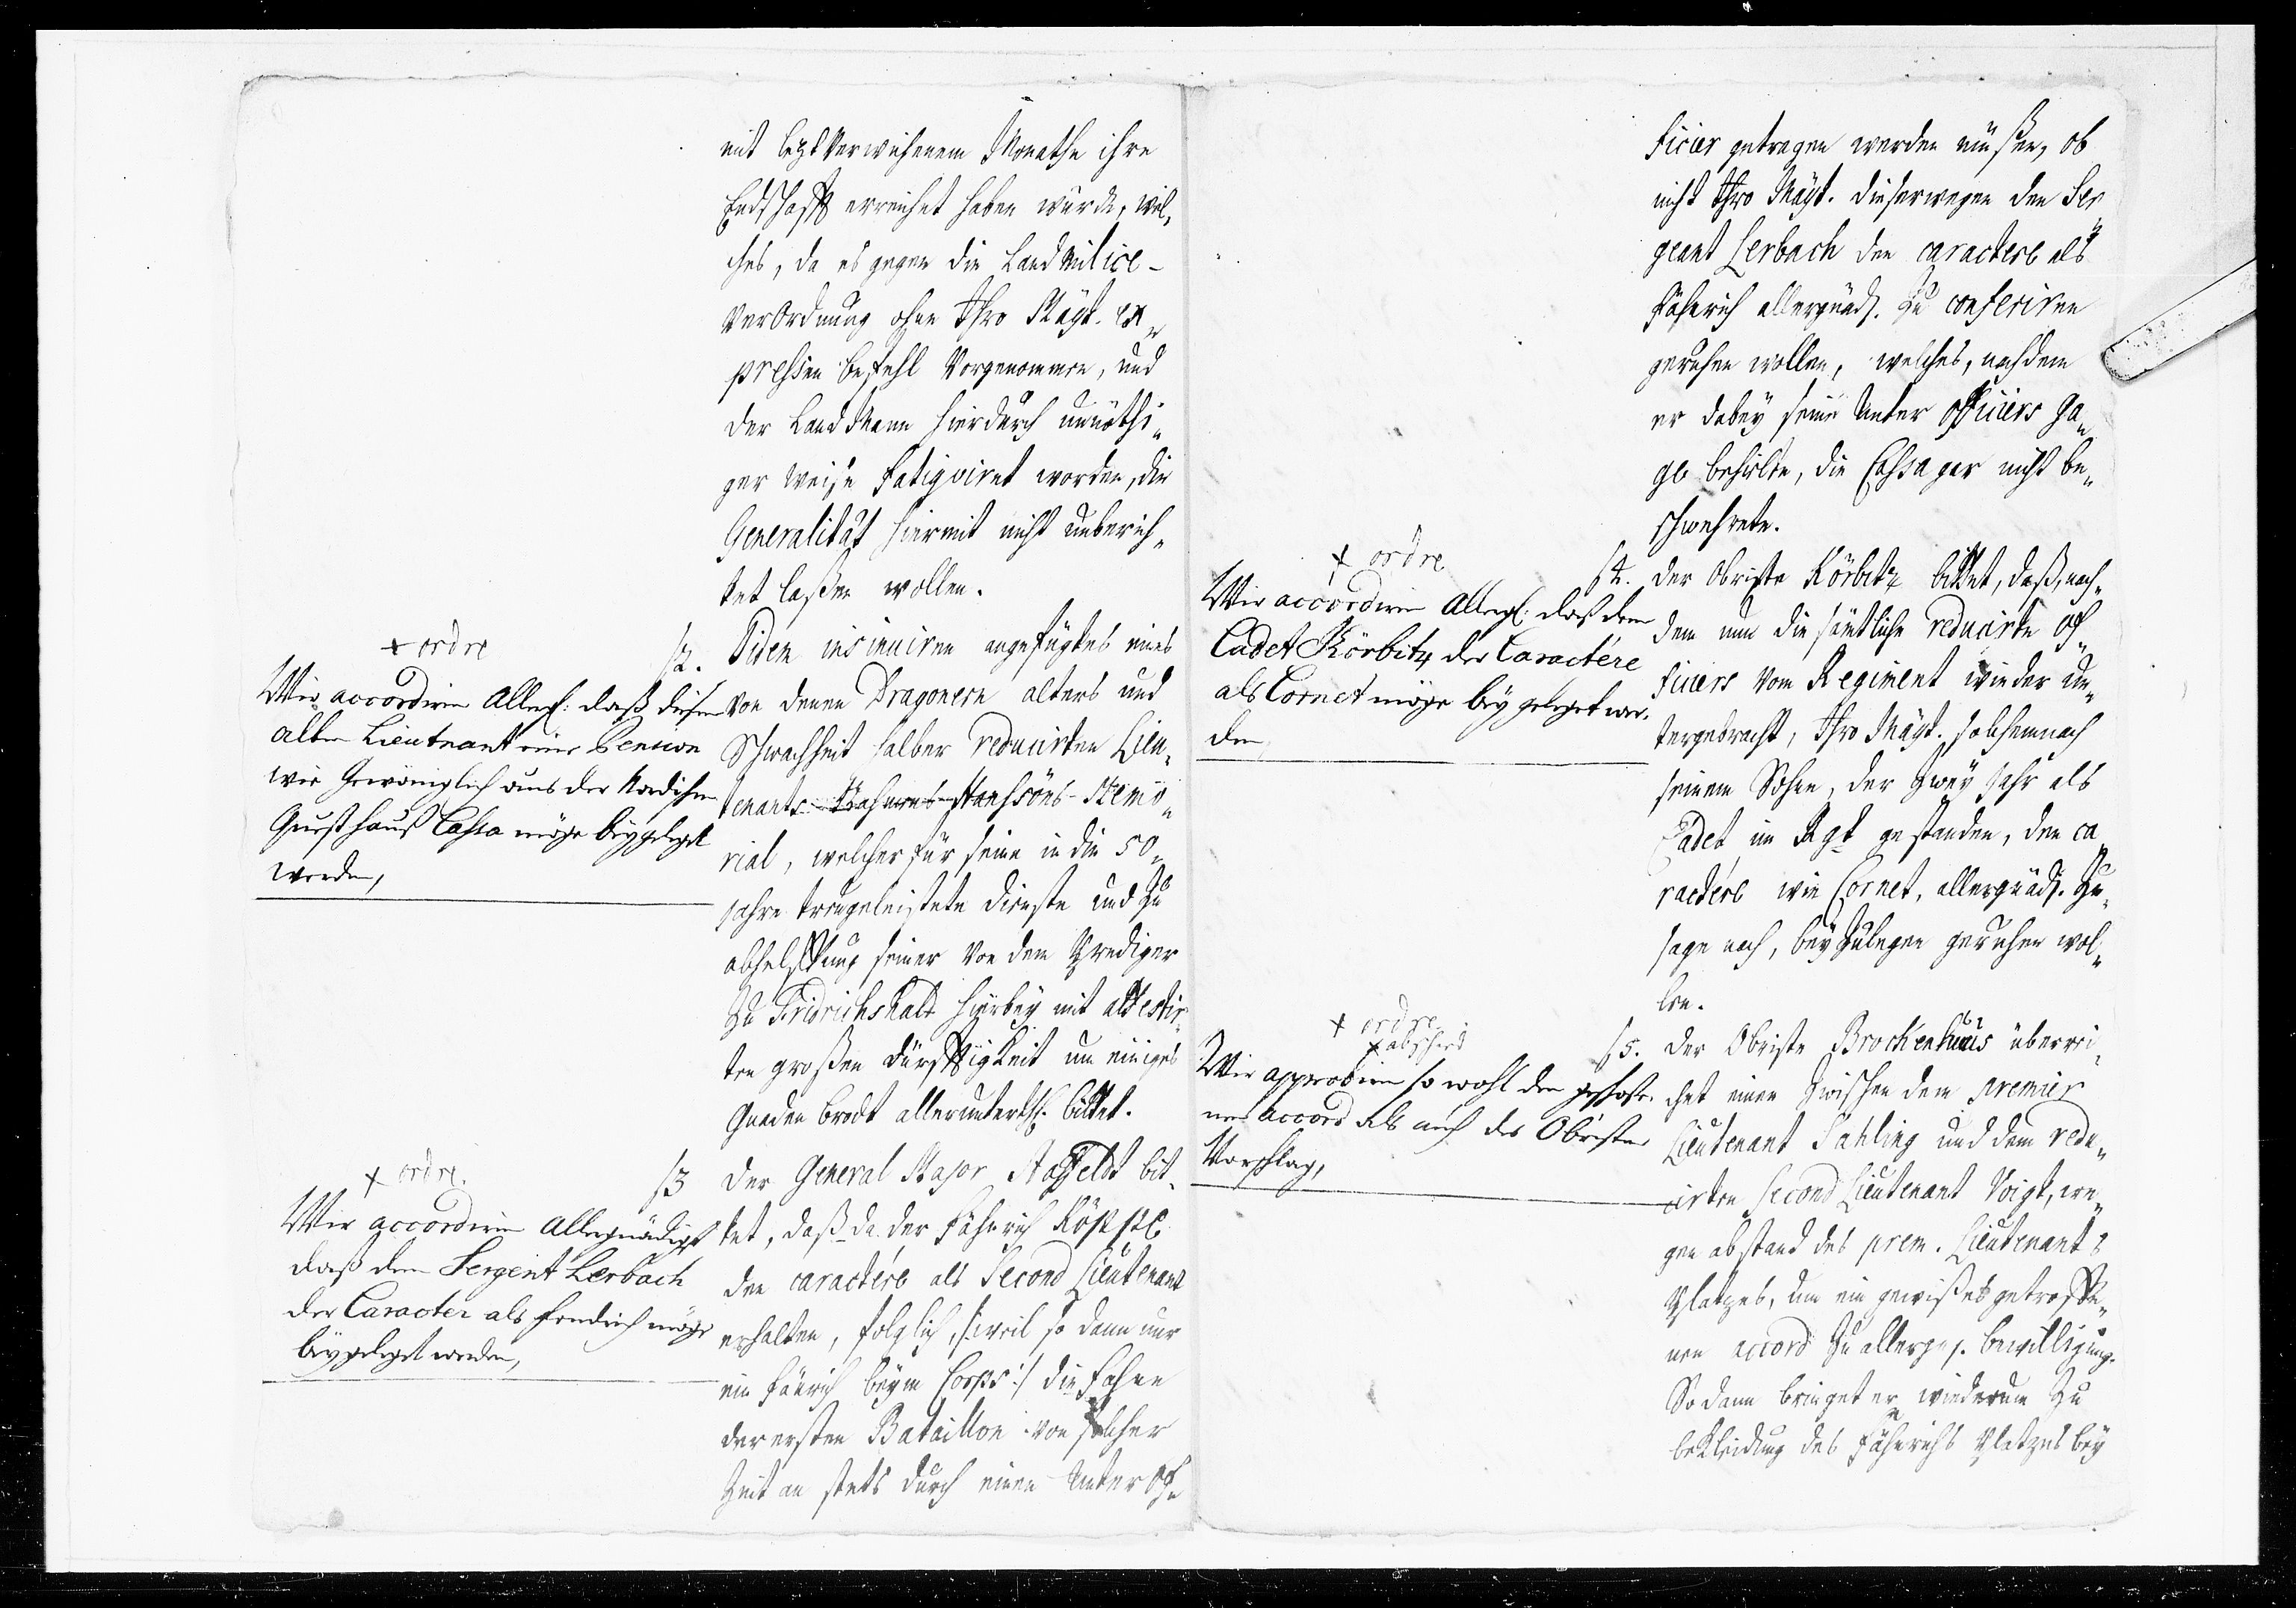 mit letzt verwichenem Monathe ihre
Endschafft erreichet haben würde, wel„
ches, da es gegen die Land Milice-
Verordnung ohne Ihro Mayt. ex„
pressen befehl vorgenommen, und
der Land Mann hierdurch unnöthi„
ger weise fatigviret worden, die
Generalität hiermit nicht unberich„
tet laßen wollen.
+ ordre
§2.
Wir accordiren Allergl: daß diesem
alten Lieutnant eine Pension
wie Gewöniglich aus der Nordischen
Qvesthauß Cassa möge beygelegt
werden,
Iidem insinuiren angefügtes eines
von denen Dragonern alters und
Schwachheit halber reducirten Lieu„
tenants Hansöns Memo„
rial, welcher für seine in die 50„
Jahre treugeleistete Dienste und zu
abhelffung seiner von dem Prediger
zu Fridrichshald hierbey mit attestir„
ten großen dürfftigkeit um einiges
Gnaden brodt allerunterth. bittet.
+ ordre.
§3
Wir accordiren Allergnädigst
daß dem Sergent Lerbach
der Caracter als fendrich möge
beygeleget werden,
Der General Major Staffeldt bit„
tet, daß da der Fähnrich Köppe
den caractére als Second Lieutenant
erhalten, folglich, /: weil so dann nur
ein Fänrich beym Corps :/ die Fahne
der ersten Bataillon von solcher
Zeit an stets durch einen Unter Of„
ficier getragen werden müßen, ob
nicht Ihro Mayt. dieserwegen den Ser„
geant Lerbach den caractere als
Fähnrich allergnäd. zu conferiren
geruhen wollen, welches, nachdem
er dabey seine Unter Officiers Ga„
ge behielte, die Cassa gar nicht be„
schwehrete.
+ ordre
§4.
Wir accordiren Allergl: daß dem
Cadet Körbitz der Caractére
als Cornet möge beygeleget wer„
den,
Der Obriste Körbitz bittet, daß, nach„
dem nun die sämtliche reducirte Of„
ficiers vom Regiment wieder un„
tergebracht, Ihro Mayt. solchemnach
seinem Sohne, der zwey Jahr als
Cadet im Regt gestanden, den ca„
ractére wie Cornet, allergnäd. Zu„
sage nach, beyzulegen geruhen wol„
len.
+ ordre
+ abscheid
§5.
Wir approbiren so wohl den geschoße„
nen accord als auch des Obristen
Vorschlag,
Der Obriste Brockenhuus überrei„
chet einen zwischen dem premier
Lieutenant Fahling und dem redu„
cirten Second Lieutenant Voigt, we„
gen abstand des prem. Lieutenants
Platzes, um ein gewißes getroffe„
nen accord zu allergn. bewilligung.
So dann bringet er wiederum zu
bekleidung des Fähnrichs Platzes bey